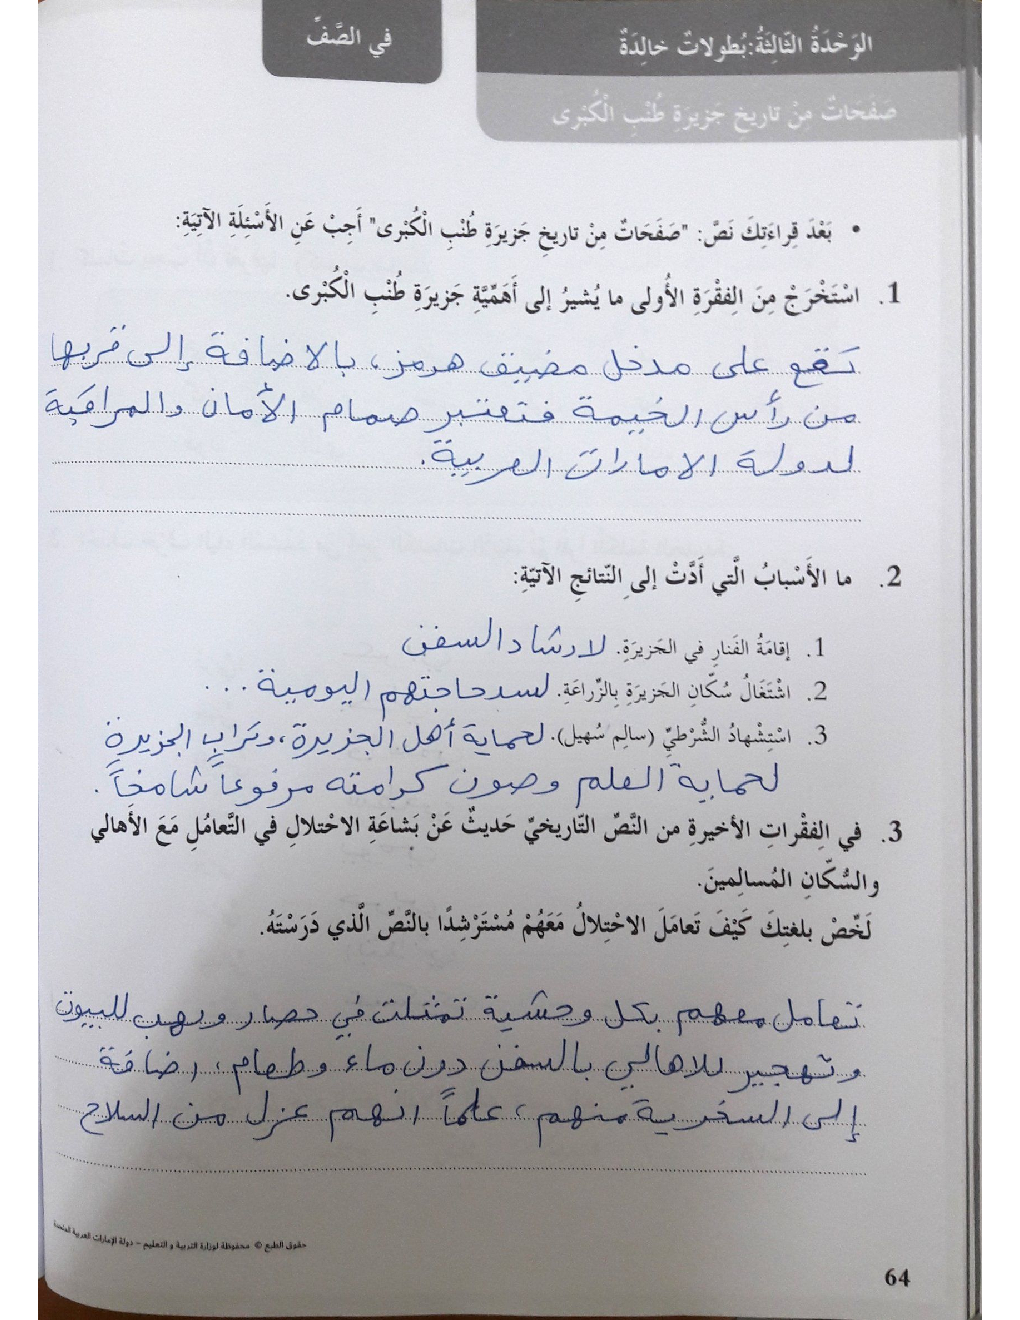 الوَحْدَةُ الثّالِثَةُ: بُطولاتٌ خالِدَةٌ
في الصَّفِّ
صَفَحَاتٌ مِنْ تاريخِ جَزيرَةِ طُنْبِ الْكُبْرى
• بَعْدَ قِراءَتِكَ نَصَّ: "صَفَحَاتٌ مِنْ تاريخِ جَزيرَةِ طُنْبِ الْكُبْرى" أَجِبْ عَنِ الأَسْئِلَةِ الآتِيَةِ:
1. اسْتَخْرَجْ مِنَ الفِقْرَةِ الأُولى ما يُشيرُ إلى أَهَمِّيَّةِ جَزيرَةِ طُنْبِ الْكُبْرى.
تقع على مدخل مضيق هرمز، بالاضافة إلى قربها
من رأس الخيمة فتعتبر صمام الأمان والمراقبة
لدولة الامارات العربية.
2. ما الأَسْبابُ الَّتي أَدَّتْ إلىِ النَّتائجِ الآتيَةِ:
1. إقامَةُ الفَنارِ في الجَزيرَةِ. لارشاد السفن
2. اشْتَغَالُ سُكّانِ الجَزيرَةِ بِالزِّراعَةِ. لسد حاجتهم اليومية ...
3. اسْتِشْهادُ الشُّرْطيِّ (سالِم سُهيل). لحماية أهل الجزيرة، وتراب الجزيرة
لحماية العلم وصون كرامته مرفوعاً شامخاً.
3. في الفِقْراتِ الأخيرةِ من النَّصِّ التّاريخيِّ حَديثٌ عَنْ بَشاعَةِ الاحْتلالِ في التَّعامُلِ مَعَ الأهالي
والسُّكّانِ المُسالِمينَ.
لَخِّصْ بلغتِكَ كَيْفَ تَعامَلَ الاحْتِلالُ مَعَهُمْ مُسْتَرْشِدًا بالنَّصِّ الَّذي دَرَسْتَهُ.
تعامل معهم بكل وحشية تمثلت في حصار ونهب للبيوت
وتهجير للاهالي بالسفن دون ماء وطعام، اضافة
إلى السخرية منهم، علماً انهم عزل من السلاح
حقوق الطبع © محفوظة لوزارة التربية و التعليم – دولة الإمارات العربية المتحدة
64